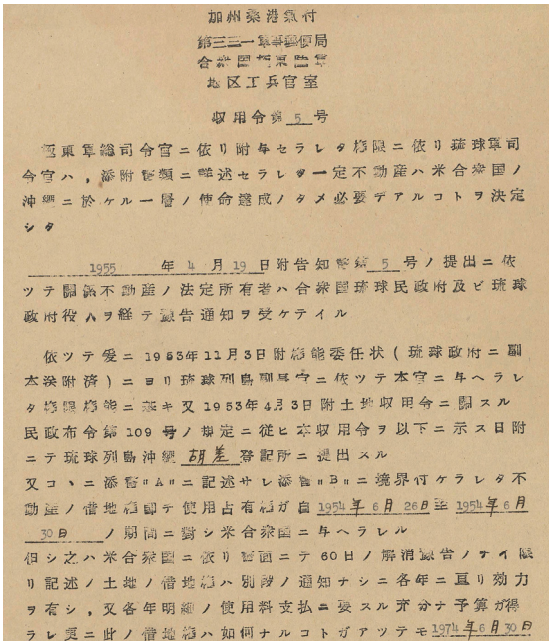 加州桑港気付
第三三一軍事郵便局
合衆国極東陸軍
地区工兵官室
収用令第 5 号
極東軍総司令官ニ依リ附与セラレタ権限ニ依リ琉球軍司
令官ハ，添附書類ニ詳述セラレタ一定不動産ハ米合衆国ノ
沖縄ニ於ケル一層ノ使命達成ノタメ必要デアルコトヲ決定
シタ
1955 年 4 月 19 日附告知書第 5 号ノ提出ニ依
ツテ関係不動産ノ法定所有者ハ合衆国琉球民政府及ビ琉球
政府役ハヲ経テ予告通知ヲ受ケテイル
依ツテ爰ニ 1953年11月3日附権能委任状（琉球政府ニ副
本添附済）ニヨリ琉球列島副長官ニ依ツテ本官ニ与ヘラレ
タ権限権能ニ基キ又 1953年4月3日附土地収用令ニ関スル
民政布令第 109 号ノ規定ニ従ヒ本収用令ヲ以下ニ示ス日附
ニテ琉球列島沖縄 胡差 登記所ニ提出スル
又コヽニ添書"A"ニ記述サレ添書"B"ニ境界付ケラレタ不
動産ノ借地権即チ使用占有権ガ自 1954年 6月 26日 至 1954年 6月
30日 ノ期間ニ対シ米合衆国ニ与ヘラレル
但シ之ハ米合衆国ニ依リ書面ニテ 60日ノ解消予告ノナイ限
リ記述ノ土地ノ借地権ハ別段ノ通知ナシニ各年ニ亘リ効力
ヲ有シ，又各年明細ノ使用料支払ニ要スル充分ナ予算ガ得
ラレ更ニ此ノ借地権ハ如何ナルコトガアツテモ 1974年 6月 30日